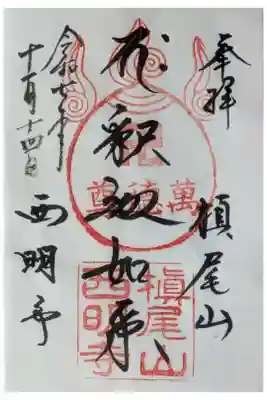 奉拝
槇尾山
釈迦如来
萬徳尊
槇尾山
西明寺
令和年
月十四日
西明寺